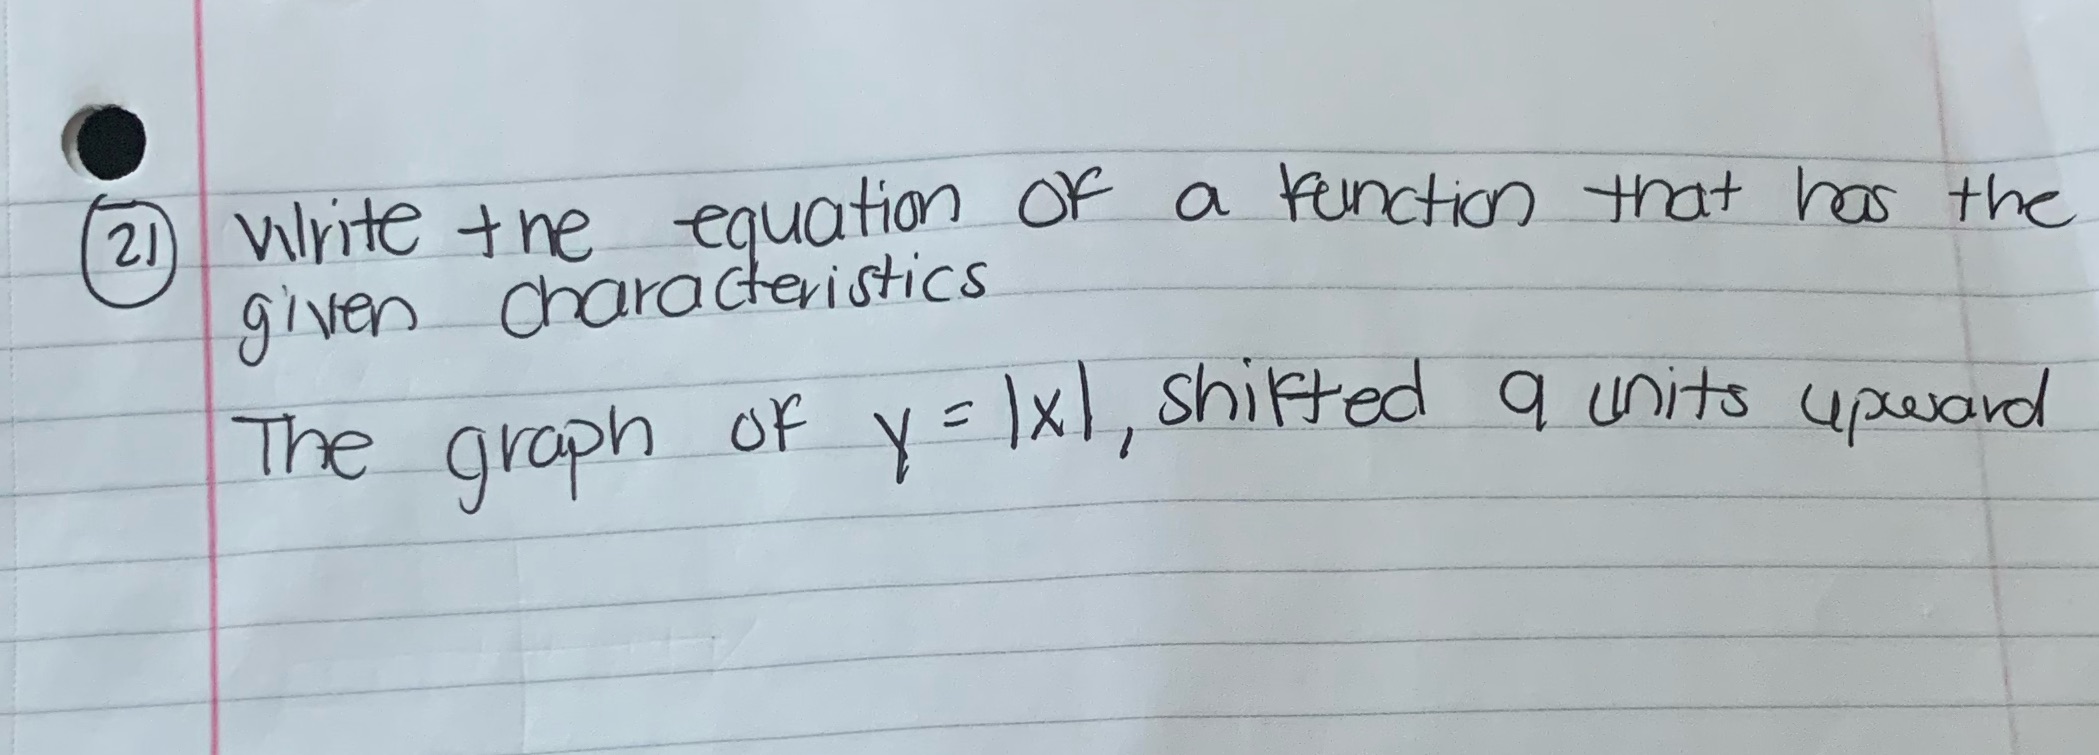 21 Write the equation of a function that has the
given characteristics
The graph of y = |x|, shifted 9 units upward